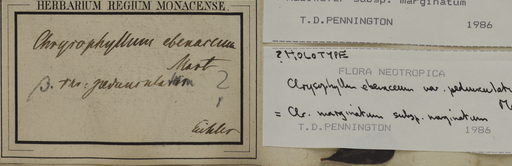 HERBARIUM REGIUM MONACENSE.
Chrysophyllum ebenaceum
Mart
β. var: pedunculatum ?
!
Eichler
subsp. marginatum
T.D.PENNINGTON 1986
? HOLOTYPE
FLORA NEOTROPICA
Chrysophyllum ebenaceum var. pedunculatu
M
= Chr. marginatum subsp. marginatum
T.D.PENNINGTON 1986